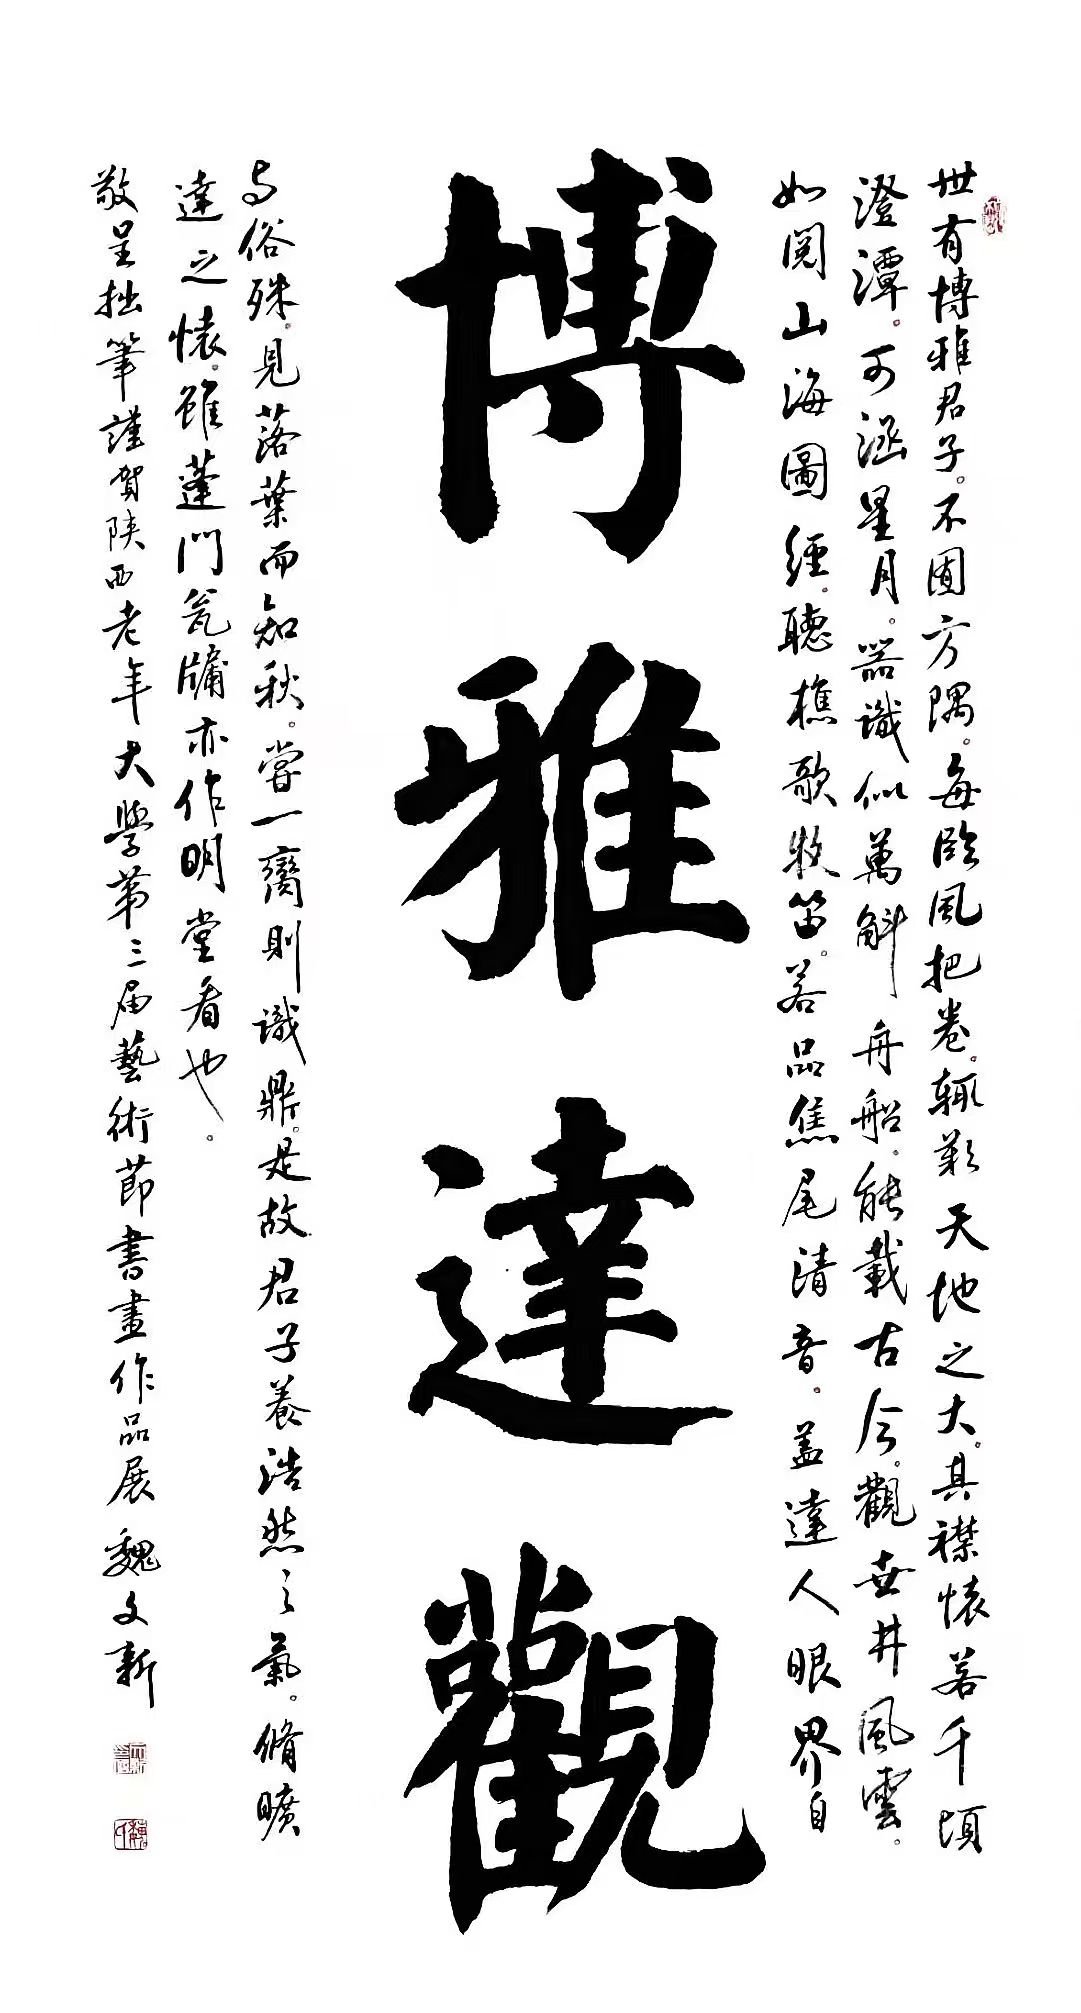 世有博雅君子。不囿方隅。每臨風把卷。輒歎天地之大。其襟懷若千頃
澄潭。可涵星月。器識似萬斛舟船。能載古今。觀世井風雲。
如閱山海圖經。聽樵歌牧笛。若品焦尾清音。蓋達人眼界自
博雅達觀
与俗殊。見落葉而知秋。嘗一臠則識鼎。是故君子養浩然之氣。脩曠
達之懷。雖蓬門瓮牖亦作明堂看也。
敬呈拙筆謹賀陕西老年大學第三届藝術節書畫作品展 魏文新